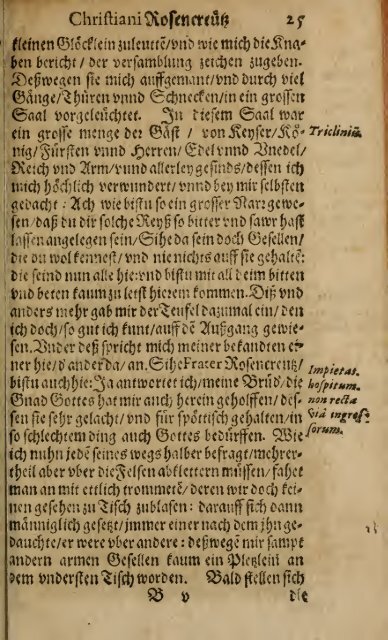 Christiani Rosencreütz 25
kleinen Glöcklein zuleuttē/vnd wie mich die Kna-
ben bericht/ der versamblung zeichen zugeben.
Deßwegen sie mich auffgenant/vnd durch viel
Gänge/Thüren vnnd Schnecken/in ein grossen
Saal vorgeleüchtet. In diesem Saal war
ein grosse menge der Gäst / von Keyser/Kö-
nig/Fürsten vnnd Herren/Edel vnnd Vnedel/
Reich vnd Arm/vnnd allerley gesinds/dessen ich
mich höchlich verwundert/vnnd bey mir selbsten
gedacht: Ach wie bistu so ein grosser Nar: gewe-
sen/daß du dir solche Reyß so bitter vnd sawr hast
lassen angelegen sein/Sihe da sein doch Gesellen/
die du wol kennest/vnd nie nichts auff sie gehaltē:
die seind nun alle hie: vnd bistu mit all deim bitten
vnd beten kaum zu letst hierein kommen. Diß vnd
anders mehr gab mir der Teüfel dazumal ein/den
ich doch/so gut ich kunt/auff dē Außgang gewie-
sen. Vnder deß spricht mich meiner bekandten ei-
ner hie/d'ander da/an. Sihe Frater Rosencreutz/
bistu auch hie: Ja antwortet ich/meine Brüd'/die
Gnad Gottes hat mir auch herein geholffen/des-
sen sie sehr gelacht/vnd für spöttisch gehalten/in
so schlechtem ding auch Gottes bedürffen. Wie
ich nuhn jedē seines wegs halber befragt/mehrer-
theil aber vber die Felsen abklettern müssen/fahet
man an mit ettlich trommetē/deren wir doch kei-
nen gesehen zu Tisch zublasen: darauff sich dann
männiglich gesetzt/jmmer einer nach dem jhn ge-
dauchte/er were vber andere: deßwegē mir sampt
andern armen Gesellen kaum ein Plețlein an
dem vndersten Tisch worden. Bald stellen sich
B v die
Triclinium.
Impietas.
hospitum.
non recta
viâ ingres-
sorum.